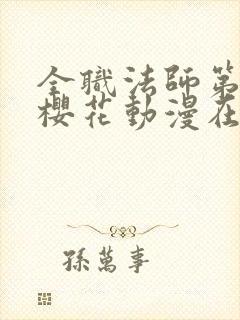 全職法師第
櫻花動漫在
孫萬事